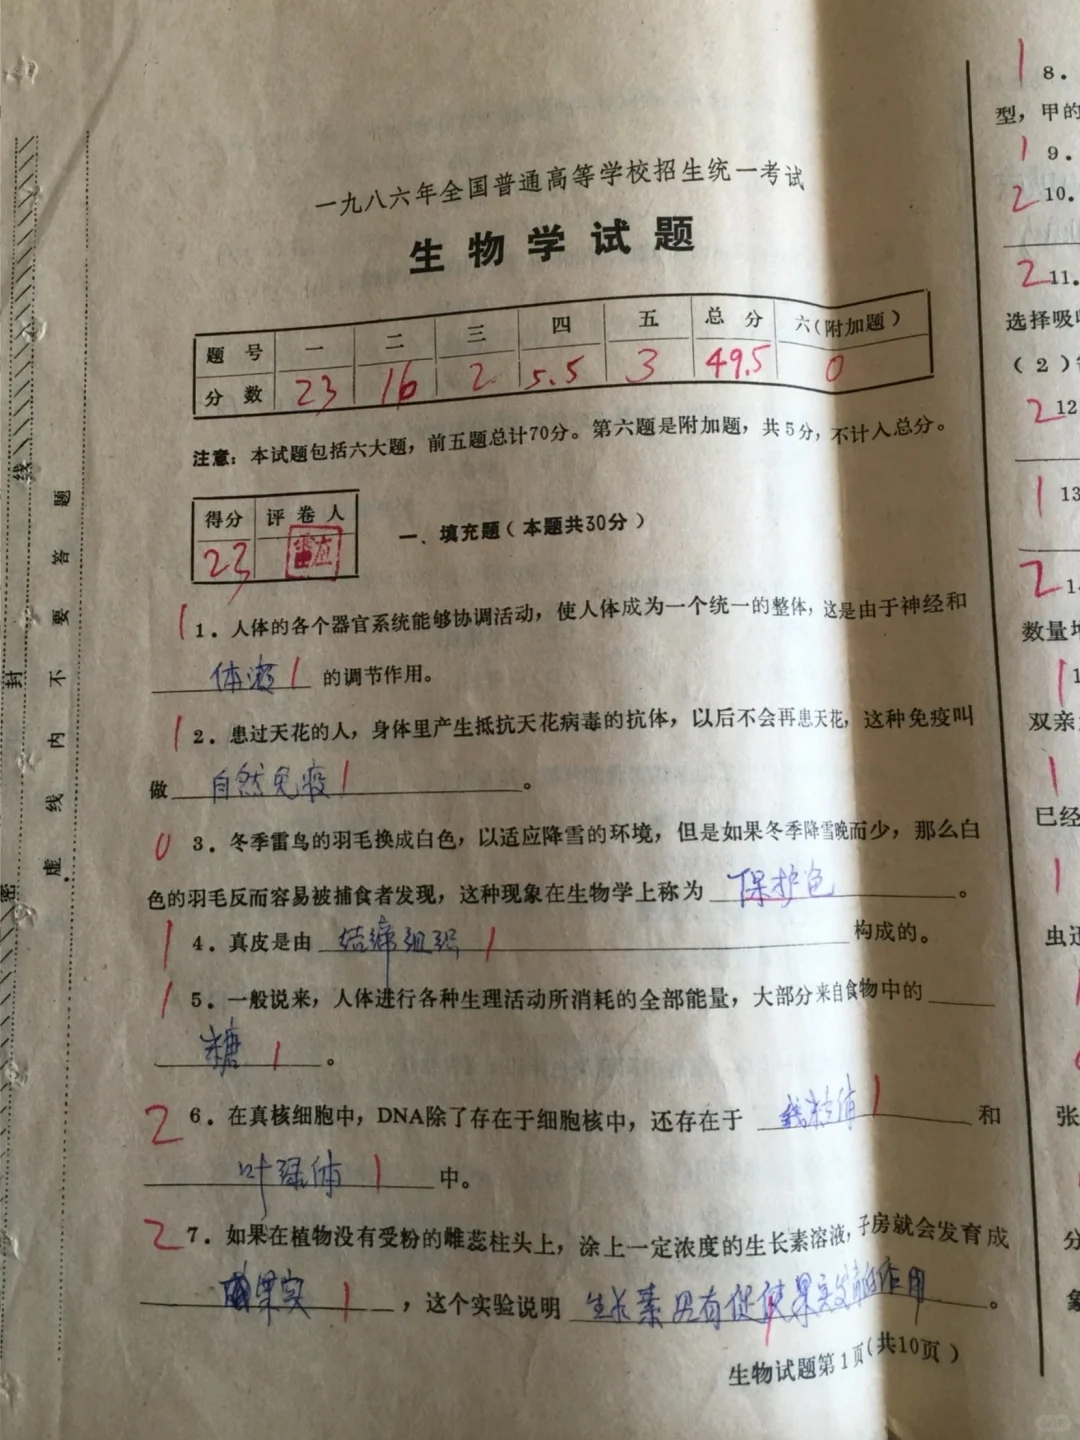 一九八六年全国普通高等学校招生统一考试
生物学试题
题号 一 二 三 四 五 总分 六(附加题)
分数 23 16 2 5.5 3 49.5 0
注意：本试题包括六大题，前五题总计70分。第六题是附加题，共5分，不计入总分。
得分 评卷人
23
一、填充题(本题共30分)
1 1．人体的各个器官系统能够协调活动，使人体成为一个统一的整体，这是由于神经和
体液 1 的调节作用。
1 2．患过天花的人，身体里产生抵抗天花病毒的抗体，以后不会再患天花，这种免疫叫
做 自然免疫 1 。
0 3．冬季雷鸟的羽毛换成白色，以适应降雪的环境，但是如果冬季降雪晚而少，那么白
色的羽毛反而容易被捕食者发现，这种现象在生物学上称为 保护色 。
1 4．真皮是由 结缔组织 1 构成的。
1 5．一般说来，人体进行各种生理活动所消耗的全部能量，大部分来自食物中的
糖 1 。
2 6．在真核细胞中，DNA除了存在于细胞核中，还存在于 线粒体 1 和
叶绿体 1 中。
2 7．如果在植物没有受粉的雌蕊柱头上，涂上一定浓度的生长素溶液，子房就会发育成
果实 1 ，这个实验说明 生长素具有促使果实发育的作用 1 。
生物试题第1页(共10页)
密 封 线
虚线内不要答题
1 8．
型，甲的
1 9．
2 10．
2 11．
选择吸
(2)
2 12
1 13
2 1
数量
1 1
双亲
1
已经
1
虫
张
分